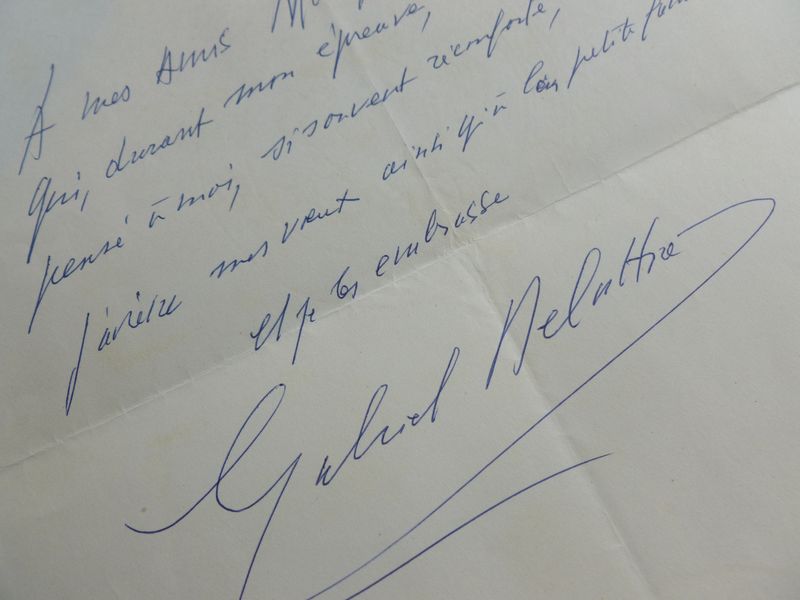 À mes Amis
qui, durant mon épreuve,
pensé à moi, si souvent réconforté,
mes vœux ainsi qu'à leur petite
et je les embrasse
Gabriel Delattre